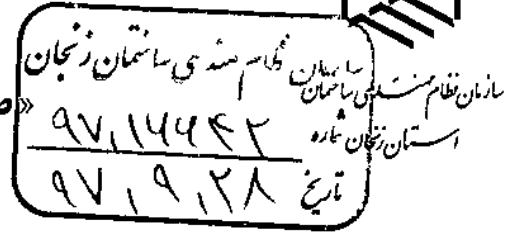 سازمان نظام مهندسی ساختمان زنجان
سازمان نظام مهندسی ساختمان
استان زنجان شماره
۹۷,۱۷۷۴۲
تاریخ ۹۷,۹,۲۸